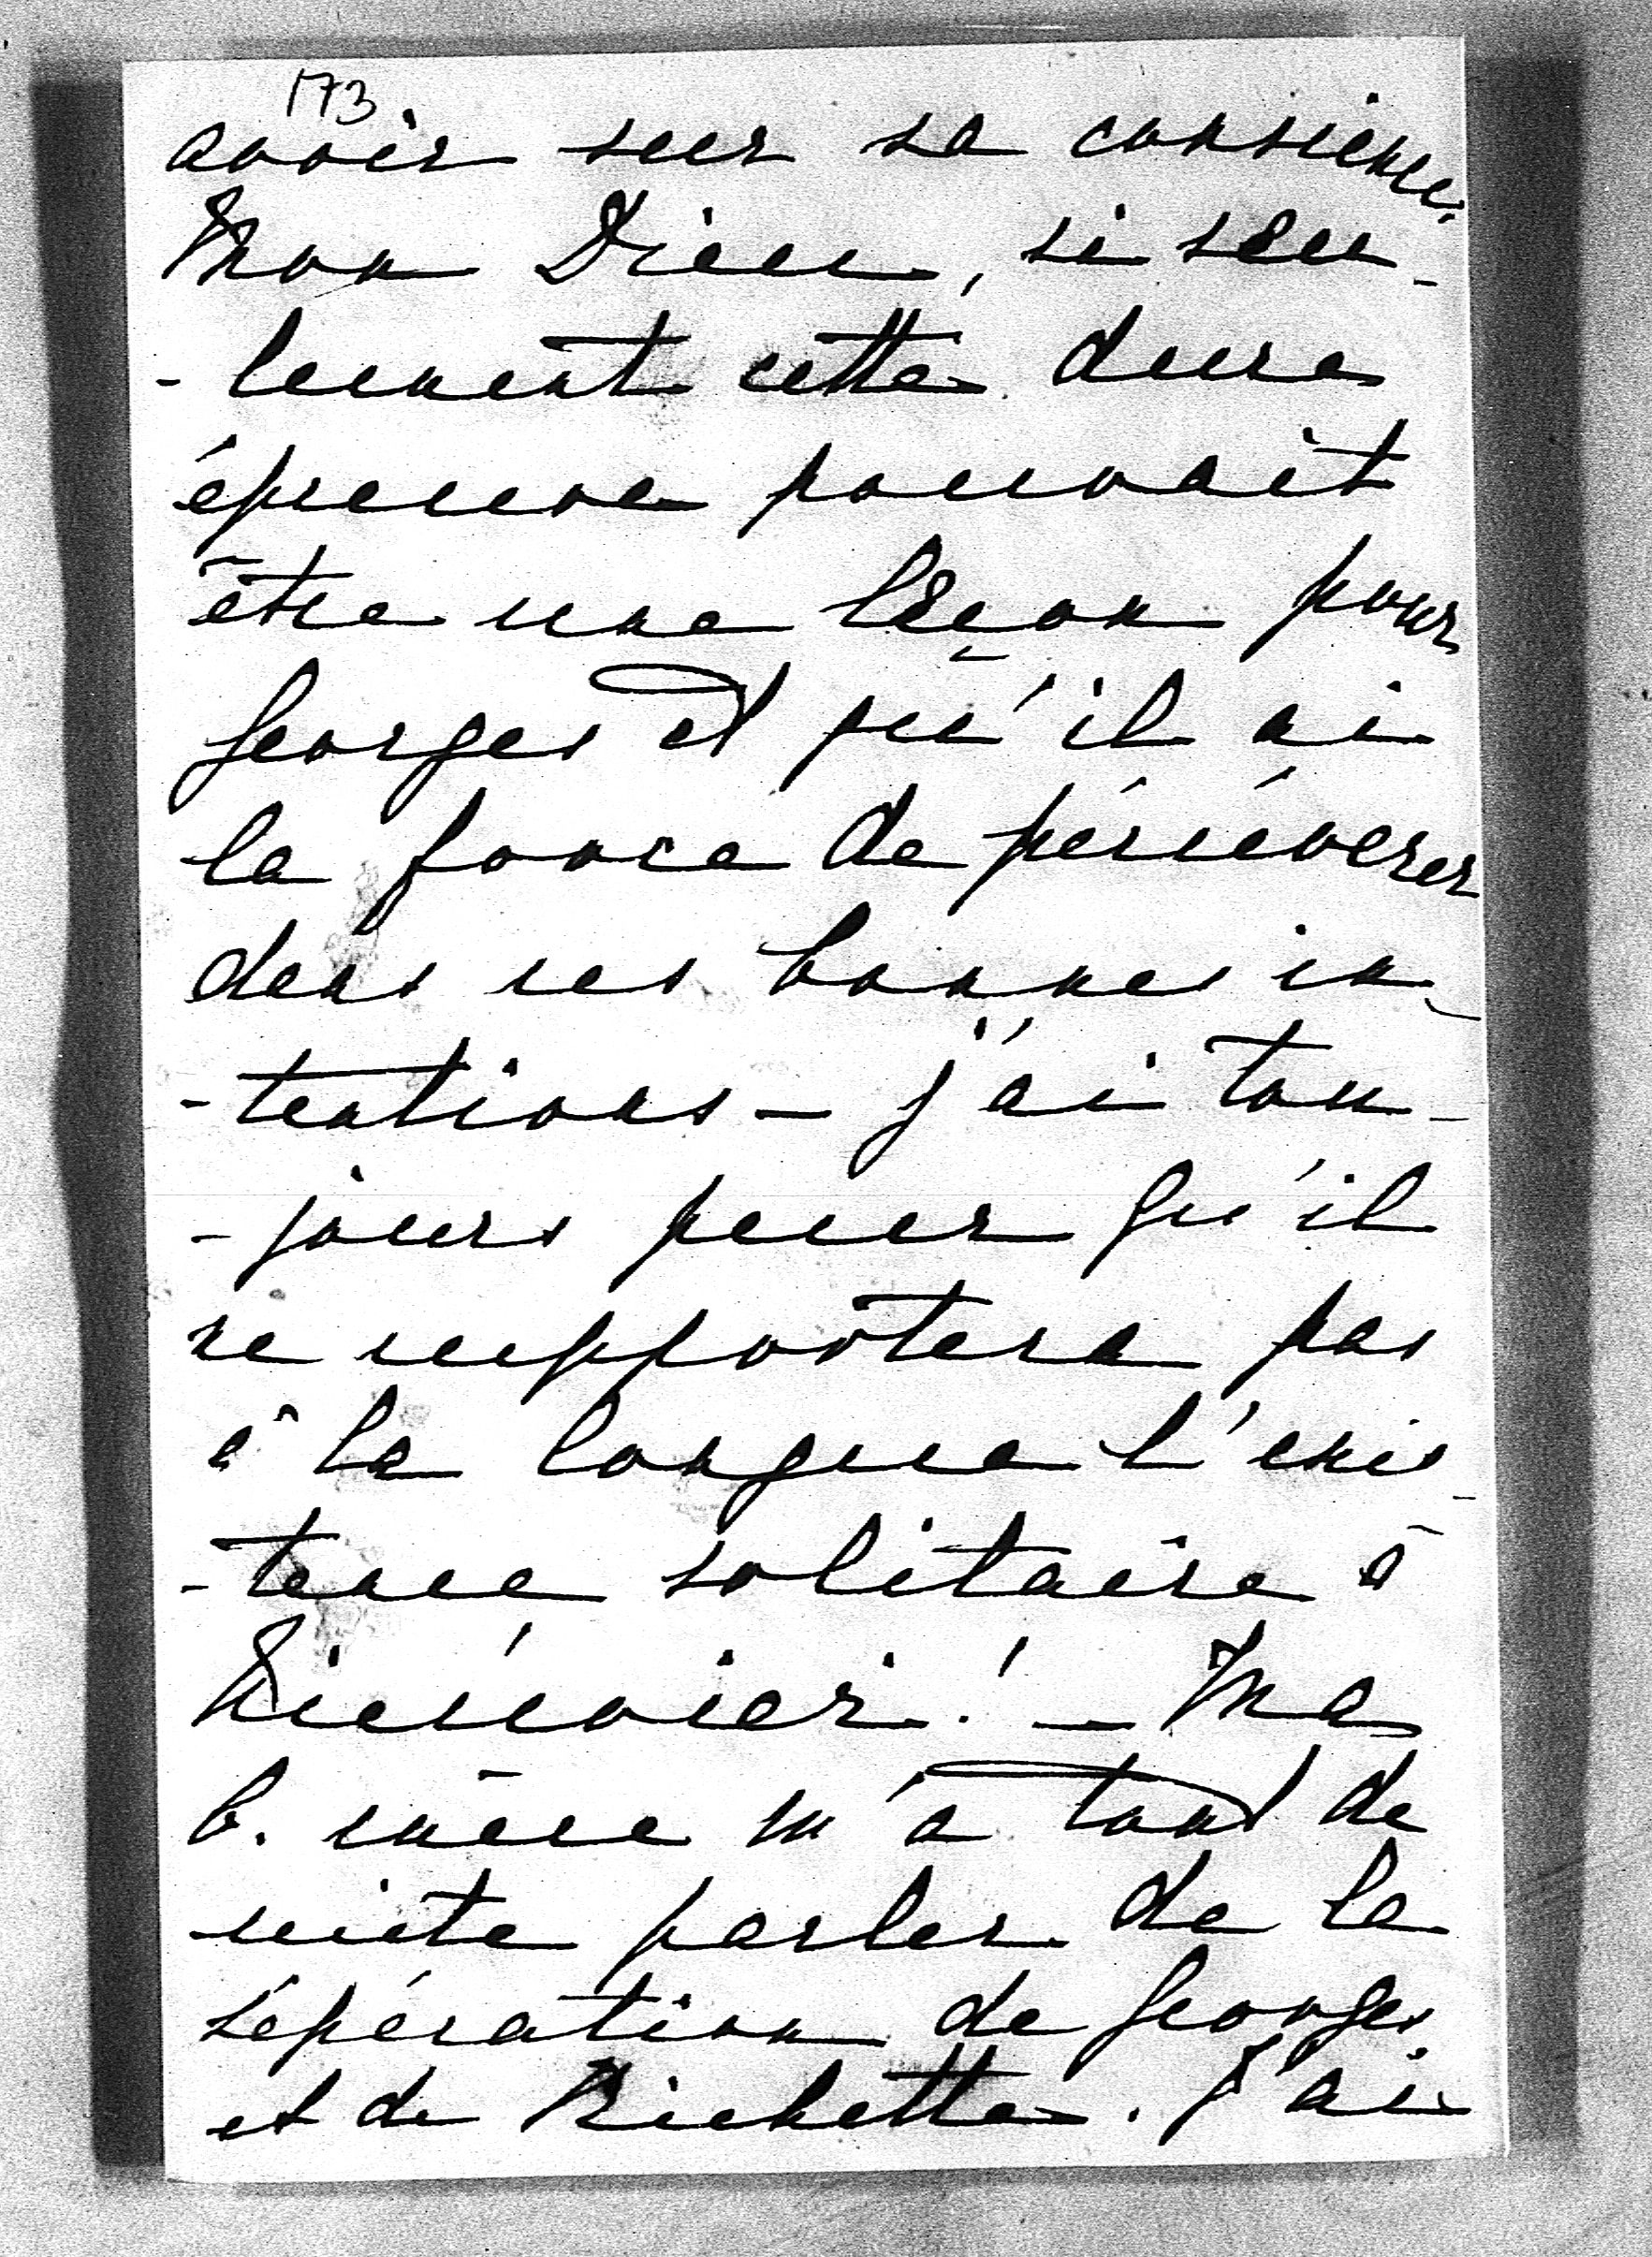 173
avoir sur sa consience.
Mon Dieu, si seu-
-lement cette dure
épreuve pouvait
être une leçon pour
Georges et qu'il ai
la force de persévérer
dans ses bonnes in-
-tentions - j'ai tou-
-jours peur qu'il
ne supportera pas
à la longue l'exis-
-tence solitaire à
! - Ma
b. mère m'a tout de
suite parler de la
séparation de Georges
et de Richette. J'ai